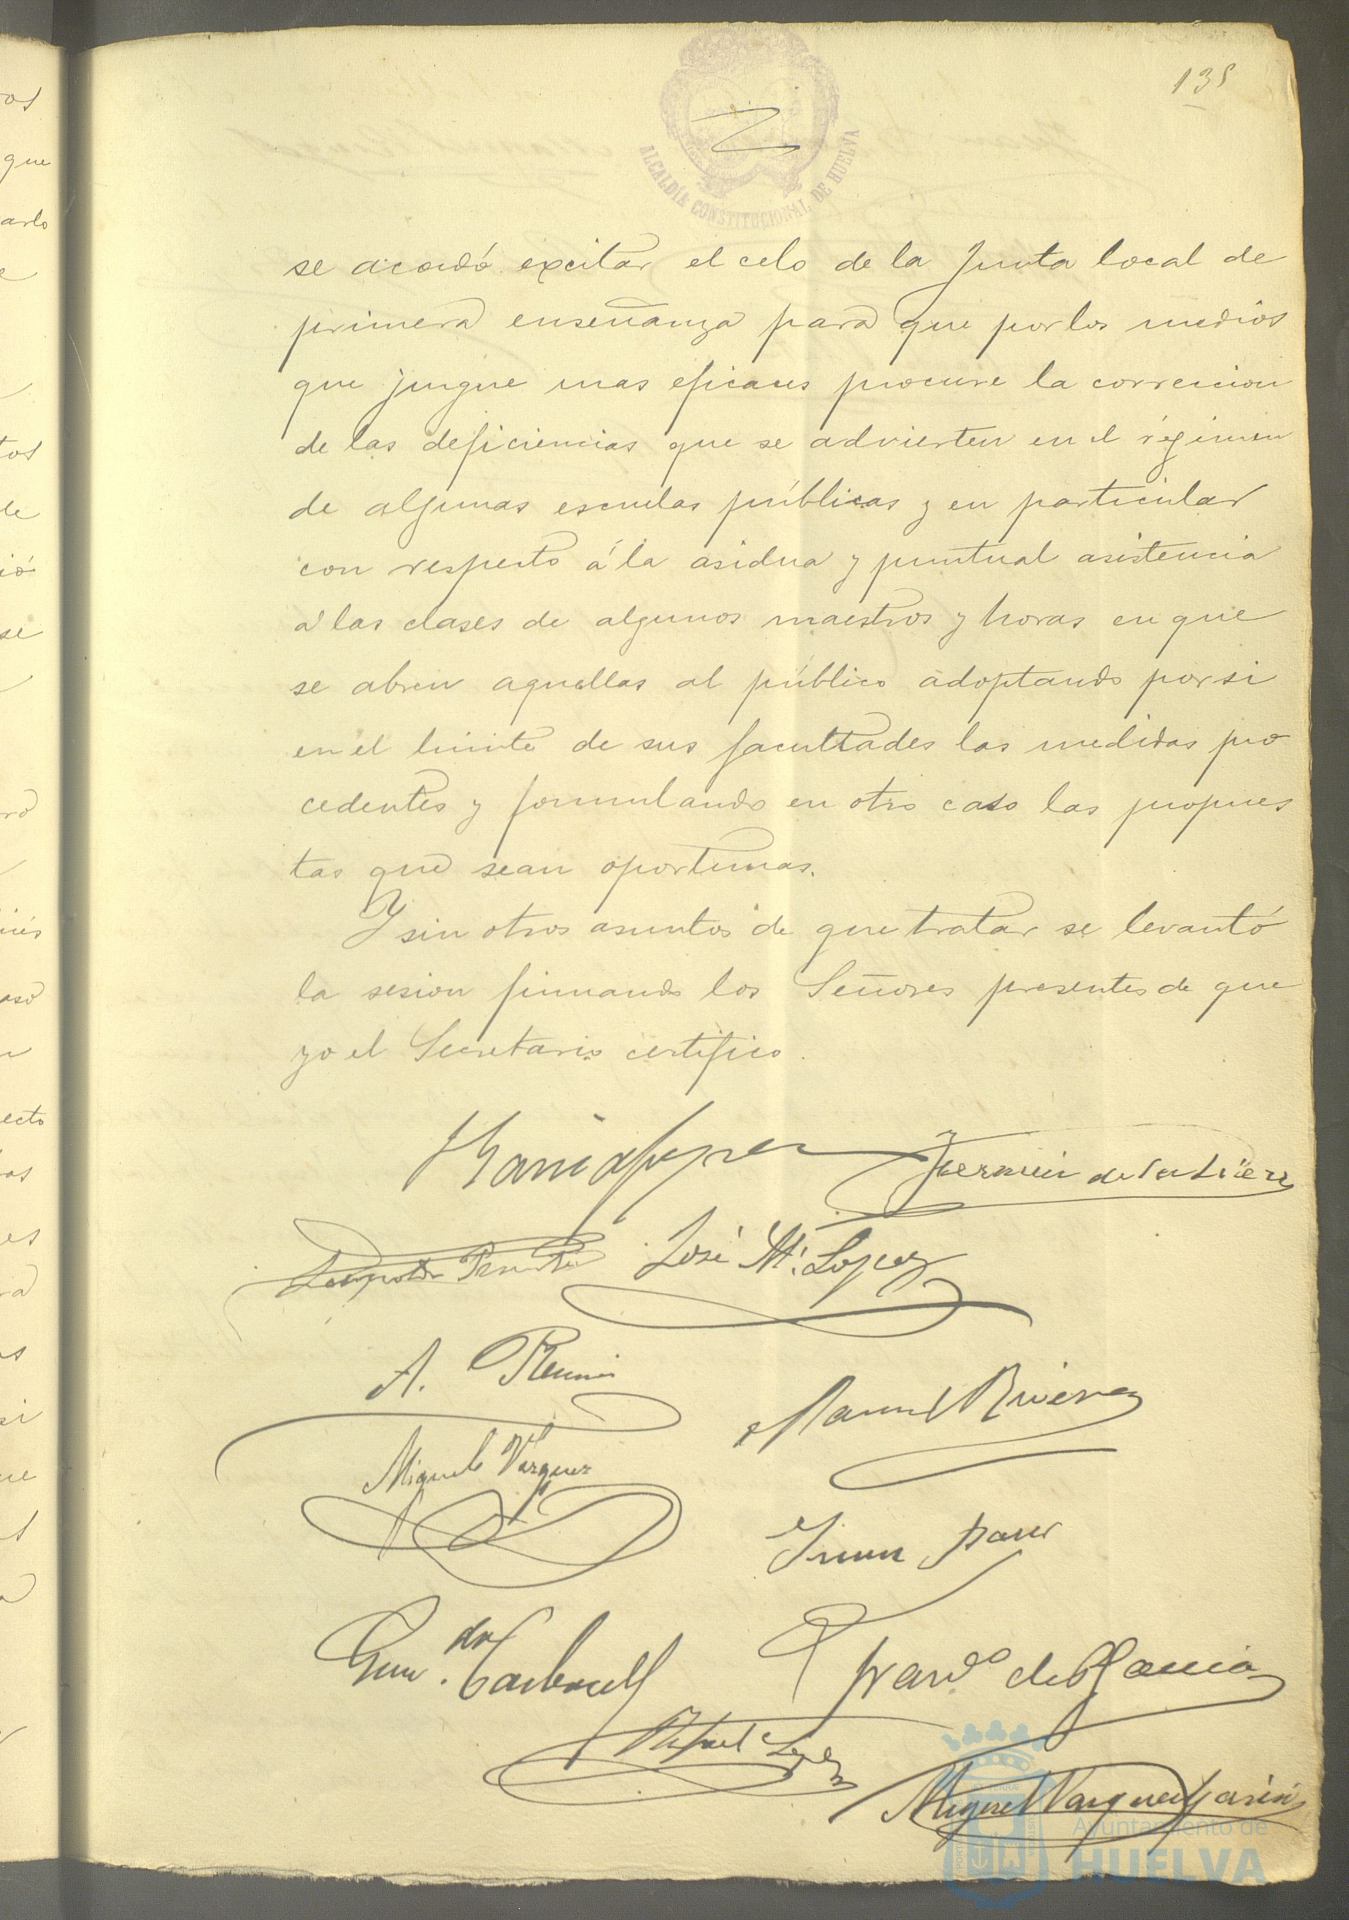 135
ALCALDÍA CONSTITUCIONAL DE HUELVA
se acordó excitar el celo de la Junta local de
primera enseñanza para que por los medios
que juzgue mas eficaces procure la correccion
de las deficiencias que se advierten en el régimen
de algunas escuelas públicas y en particular
con respecto á la asidua y puntual asistencia
á las clases de algunos maestros y horas en que
se abren aquellas al público adoptando por si
en el limite de sus facultades las medidas pro
cedentes y formulando en otro caso las propues
tas que sean oportunas.
Y sin otros asuntos de que tratar se levantó
la sesion firmando los Señores presentes de que
yo el Secretario certifico.
José Mª. Lopez
A.
Manuel Rivera
Miguel Vazquez
Juan
Franº. de P. Garcia
Rafael Lopez
Miguel Vazquez Garcia
Ayuntamiento de
HUELVA